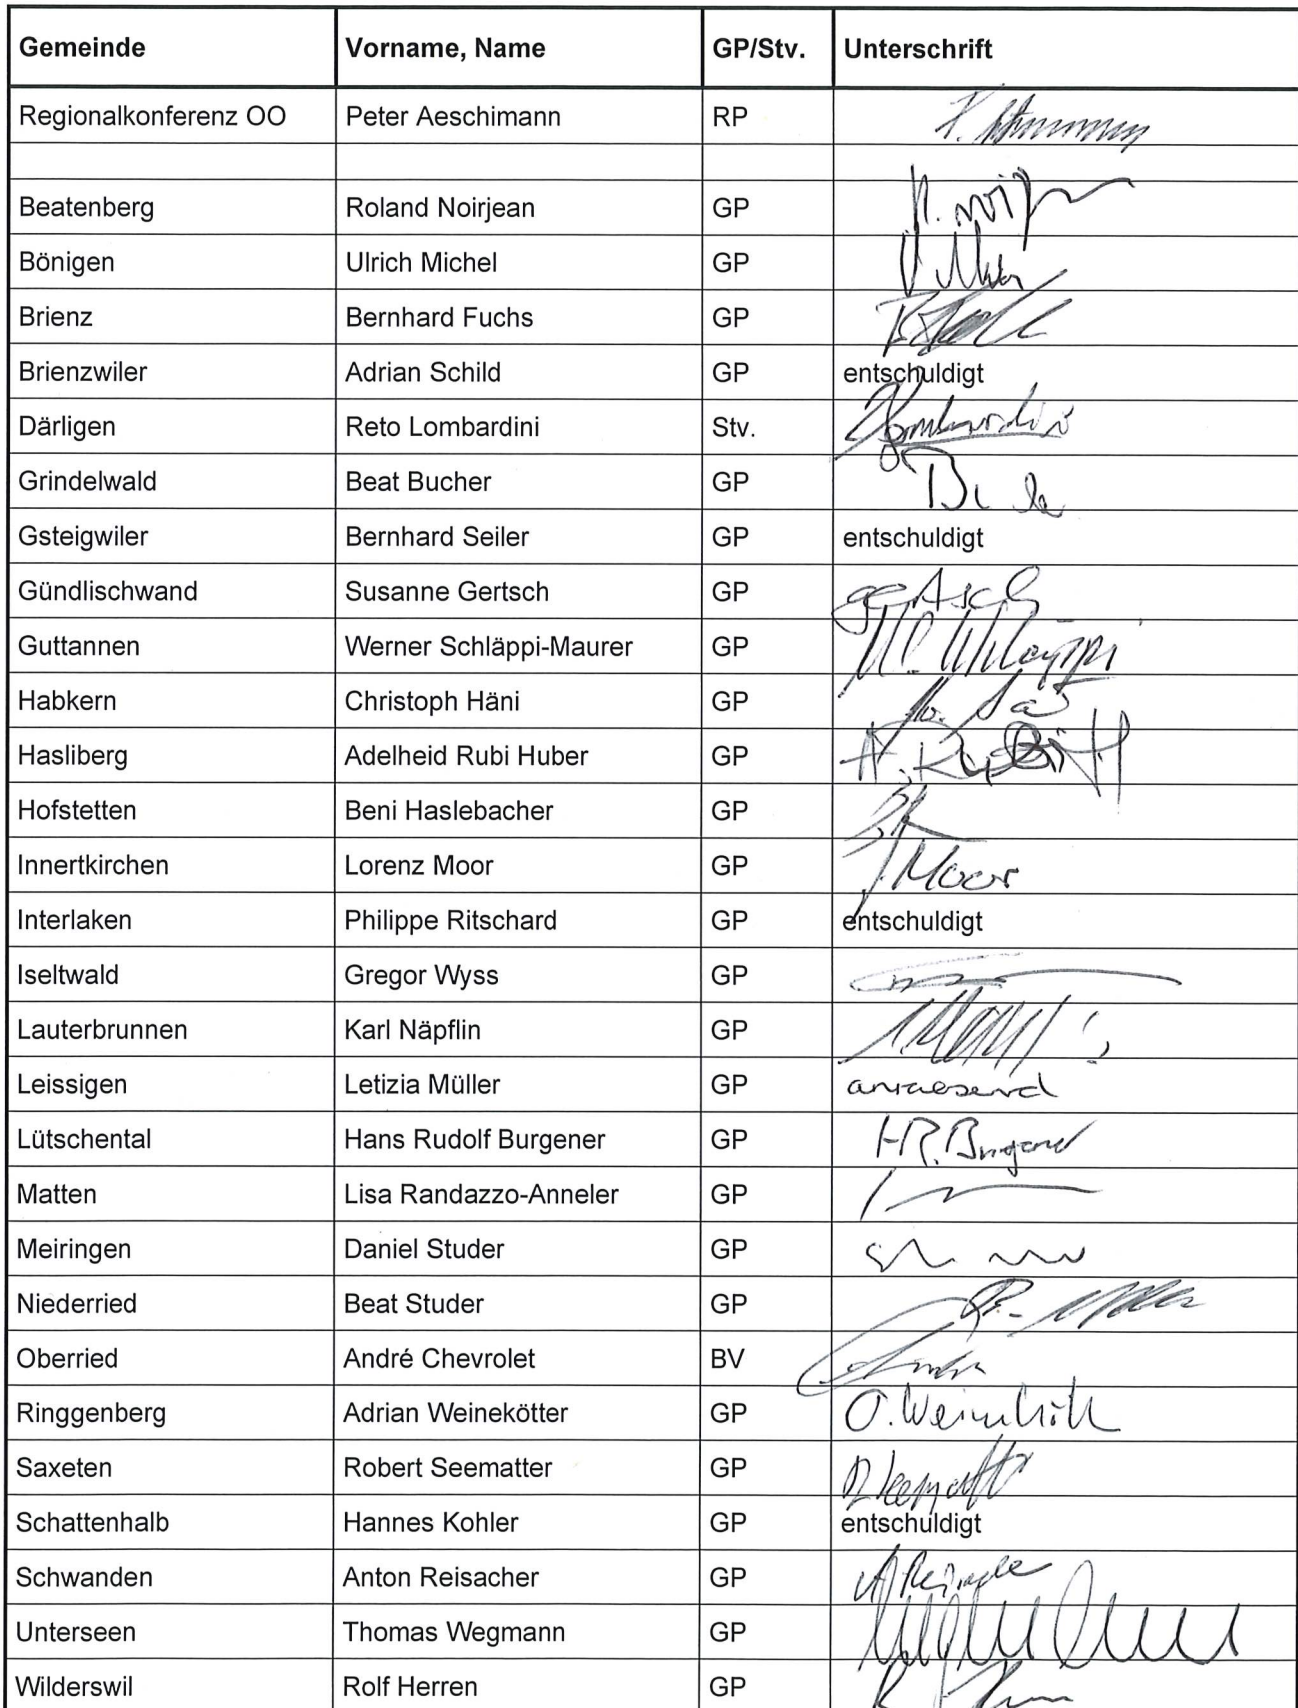 Gemeinde Vorname, Name GP/Stv. Unterschrift
Regionalkonferenz OO Peter Aeschimann RP
Beatenberg Roland Noirjean GP
Bönigen Ulrich Michel GP
Brienz Bernhard Fuchs GP
Brienzwiler Adrian Schild GP entschuldigt
Därligen Reto Lombardini Stv. Lombardini
Grindelwald Beat Bucher GP
Gsteigwiler Bernhard Seiler GP entschuldigt
Gündlischwand Susanne Gertsch GP gertsch
Guttannen Werner Schläppi-Maurer GP
Habkern Christoph Häni GP
Hasliberg Adelheid Rubi Huber GP
Hofstetten Beni Haslebacher GP
Innertkirchen Lorenz Moor GP Moor
Interlaken Philippe Ritschard GP entschuldigt
Iseltwald Gregor Wyss GP
Lauterbrunnen Karl Näpflin GP
Leissigen Letizia Müller GP anwesend
Lütschental Hans Rudolf Burgener GP HR. Burgener
Matten Lisa Randazzo-Anneler GP
Meiringen Daniel Studer GP
Niederried Beat Studer GP
Oberried André Chevrolet BV
Ringgenberg Adrian Weinekötter GP
Saxeten Robert Seematter GP
Schattenhalb Hannes Kohler GP entschuldigt
Schwanden Anton Reisacher GP
Unterseen Thomas Wegmann GP
Wilderswil Rolf Herren GP